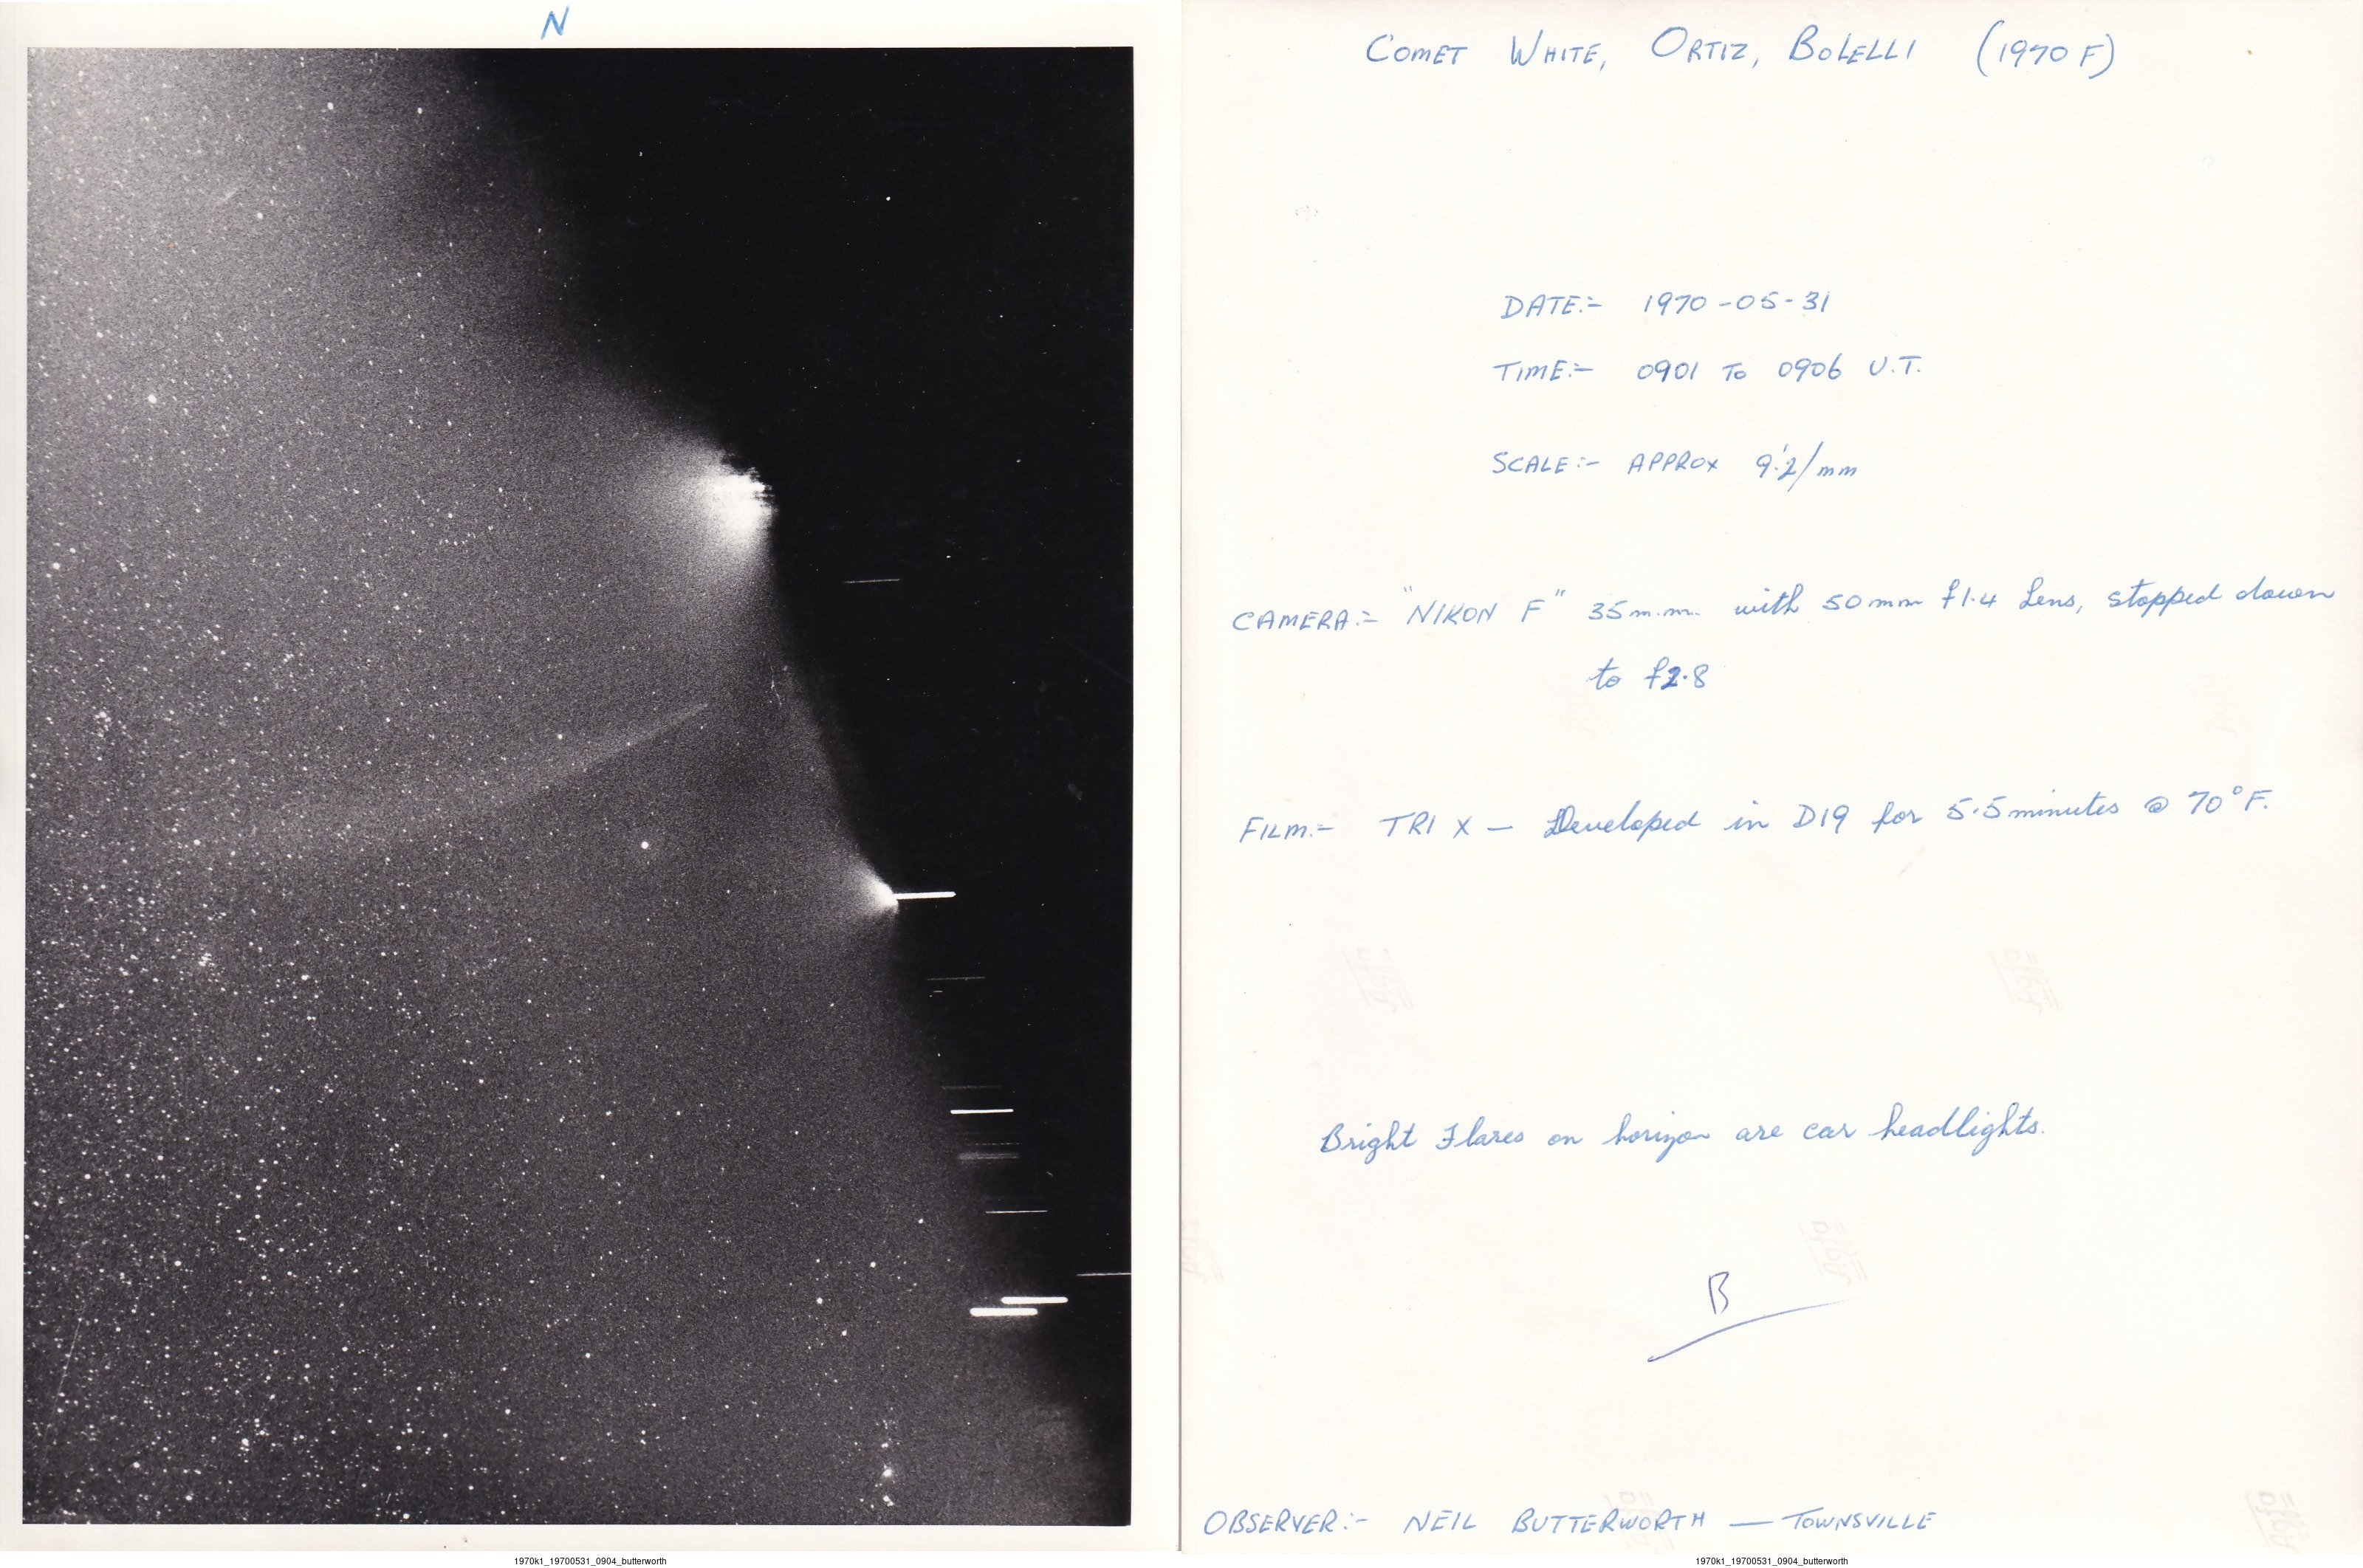 N
COMET WHITE, ORTIZ, BOLELLI (1970 F)
DATE:- 1970-05-31
TIME:- 0901 TO 0906 U.T.
SCALE:- APPROX 9.'2/mm
CAMERA:- "NIKON F" 35 m.m. with 50mm f1.4 Lens, stopped down
to f2.8
FILM:- TRI X - Developed in D19 for 5.5 minutes @ 70°F.
Bright Flares on horizon are car headlights.
B
OBSERVER:- NEIL BUTTERWORTH — TOWNSVILLE
1970k1_19700531_0904_butterworth
1970k1_19700531_0904_butterworth